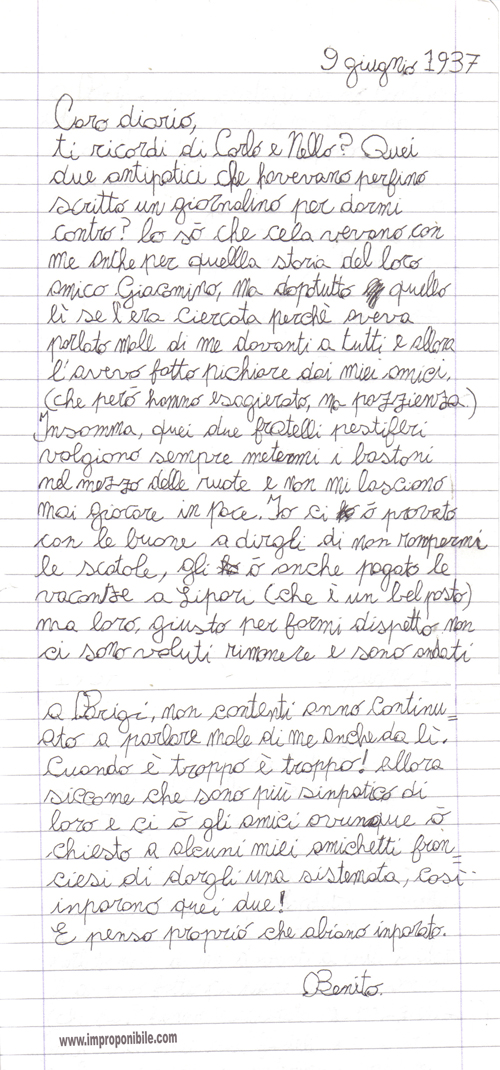 9 giugnio 1937
Caro diario,
ti ricordi di Carlo e Nello? Quei
due antipatici che havevano perfino
scritto un giornalino per darmi
contro? lo sò che cela vevano con
me anche per quellla storia del loro
amico Giacomino, ma doptutto quello
lì se l'era ciercata perchè aveva
parlato male di me davanti a tutti e allora
l'avevo fatto pichiare dai miei amici.
(che però hanno esagierato, ma pazzienza.)
Insomma, quei due fratelli pestiferi
volgiono sempre metermi i bastoni
nel mezzo delle ruote e non mi lasciono
mai giocare in pace. Io ci ò provato
con le buone a dirgli di non rompermi
le scatole, gli ò anche pagato le
vacantze a Lipari (che è un bel posto)
ma loro, giusto per farmi dispetto non
ci sono voluti rimanere e sono andati
a Parigi, non contenti anno continu=
ato a parlare male di me anche da lì.
Cuando è troppo è troppo! allora
siccome che sono più sinpatico di
loro e ci ò gli amici ovunque ò
chiesto a alcuni miei amichetti fran=
ciesi di dargli una sistemata, così
inparano quei due!
E penso proprio che abiano inparato.
Benito.
www.improponibile.com